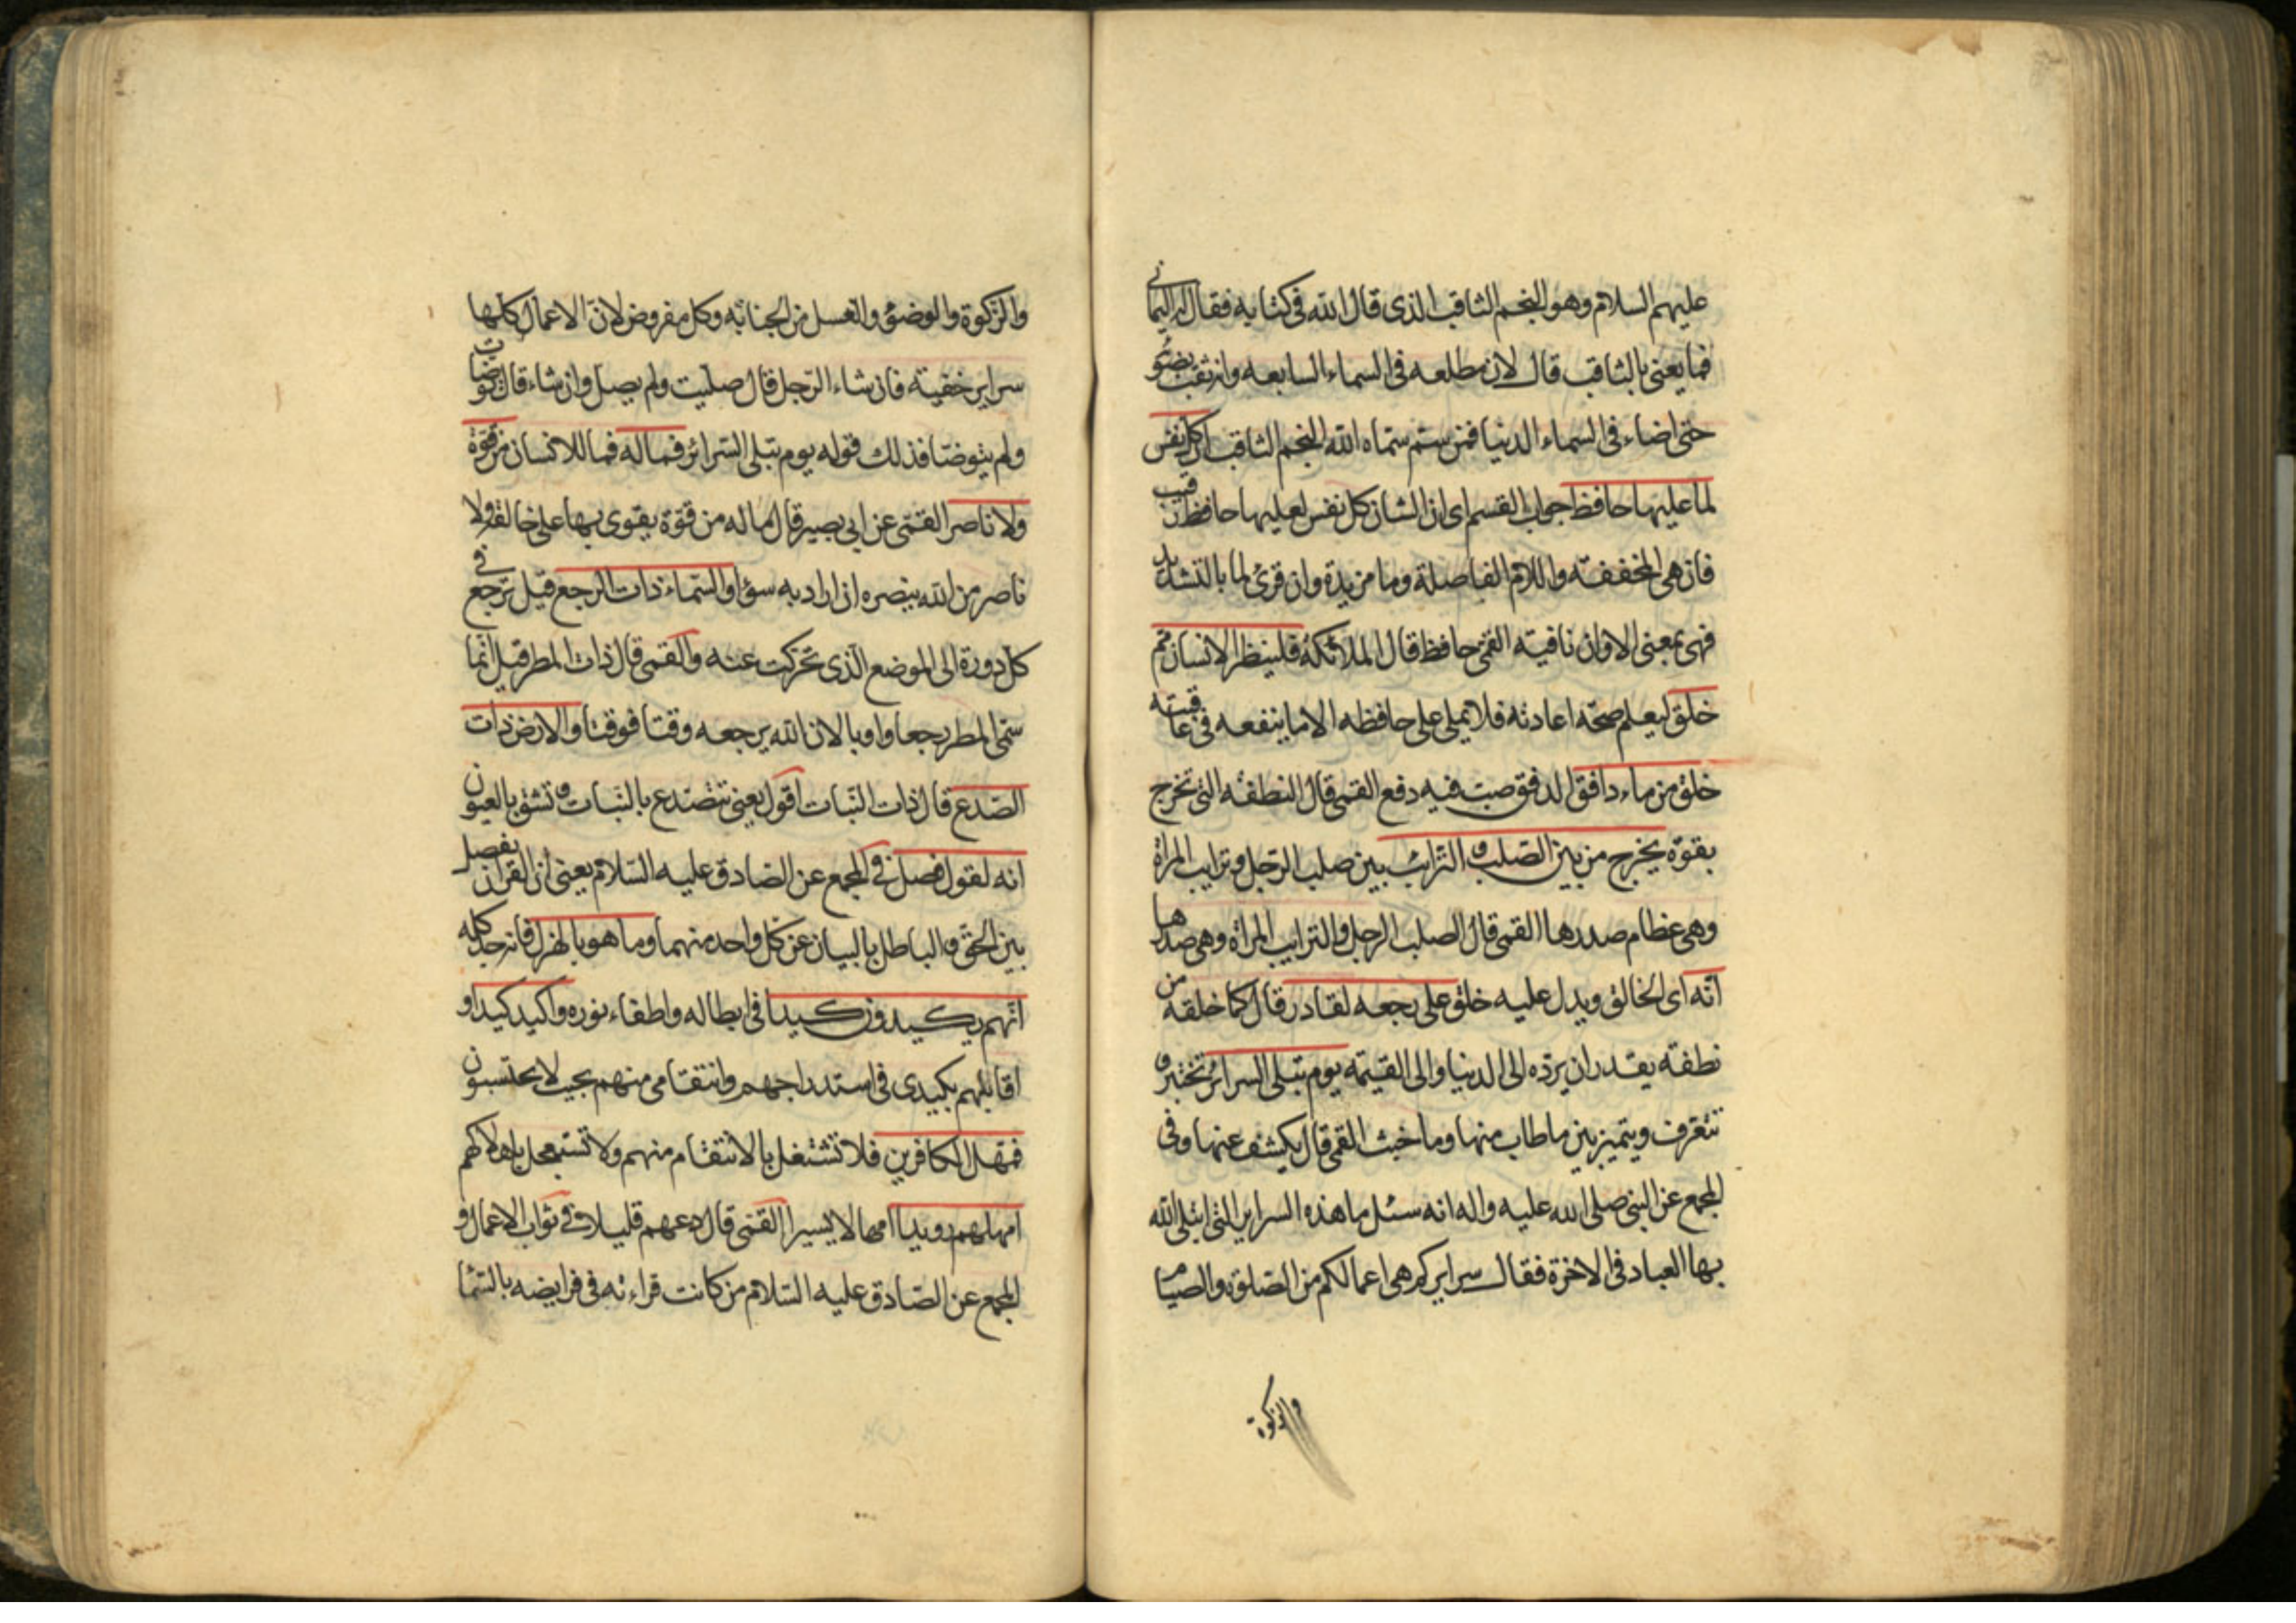 عليهم السلام وهو النجم الثاقب الذى قال الله فى كتابه فقال له اليمانى
فما يعنى بالثاقب قال لان مطلعه فى السماء السابعه وانه ثقب بضوئه
حتى اضاء فى السماء الدنيا فمن ثم سماه الله النجم الثاقب ان كل نفس
لما عليها حافظ جواب القسم اى ان الشان كل نفس لعليها حافظ رقيب
فان هى المخففه واللام الفاصلة وما مزيدة وان قرئ لما بالتشديد
فهى بمعنى الا وان نافيته القمى حافظ قال الملائكه فلينظر الانسان مم
خلق ليعلم صحه اعادته فلا يملى على حافظه الا ما ينفعه فى عاقبته
خلق من ماء دافق الدفق صب فيه دفع القمى قال النطفه التى تخرج
بقوة يخرج من بين الصلب والترائب بين صلب الرجل وترايب المراة
وهى عظام صدرها القمى قال الصلب الرجل والترايب المراة وهى صدرها
انه اى الخالق ويدل عليه خلق على رجعه لقادر قال كما خلقه من
نطفته يقدر ان يرده الى الدنيا والى القيمة يوم تبلى السرائر تختبر و
تتعرف ويتميز بين ما طاب منها وما خبث القمى قال يكشف عنها وفى
المجمع عن النبى صلى الله عليه واله انه سئل ما هذه السراير التى ابتلى الله
بها العباد فى الاخرة فقال سرايركم هى اعمالكم من الصلوة والصيام
والزكوة
والزكوة والوضوء والغسل من الجنابه وكل مفروض لان الاعمال كلها
سراير خفيته فان شاء الرجل قال صليت ولم يصل وان شاء قال توضات
ولم يتوضا فذلك قوله يوم تبلى السرائر فما له فما للانسان من قوة
ولا ناصر القمى عن ابى بصير قال ما له من قوة يقوى بها على خالقه ولا
ناصر من الله ينصره ان اراد به سوءا والسماء ذات الرجع قيل ترجع فى
كل دورة الى الموضع الذى تحركت عنه والقمى قال ذات المطر قيل انما
سمى المطر رجعا واوبا لان الله يرجعه وقتا فوقتا والارض ذات
الصدع قال ذات النبات اقول يعنى تتصدع بالنبات وتشق بالعيون
انه لقول فصل فى المجمع عن الصادق عليه السلام يعنى ان القران يفصل
بين الحق والباطل بالبيان عن كل واحد منهما وما هو بالهزل فانه جد كله
انهم يكيدون كيدا فى ابطاله واطفاء نوره واكيد كيدا و
اقابلهم بكيدى فى استدراجهم وانتقامى منهم بحيث لا يحتسبون
فمهل الكافرين فلا تشتغل بالانتقام منهم ولا تستعجل باهلاكهم
امهلهم رويدا امهالا يسيرا القمى قال دعهم قليلا فى ثواب الاعمال و
المجمع عن الصادق عليه السلام من كانت قراءته فى فرايضه بالسما